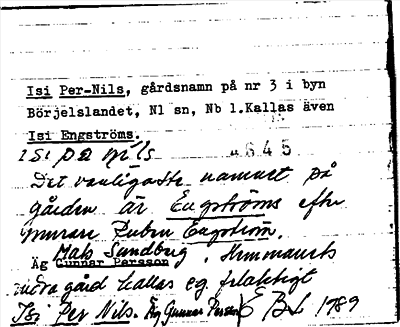 Isi Per-Nils, gårdsnamn på nr 3 i byn
Börjelslandet, Nl sn, Nb l.Kallas även
Isi Engströms.
isi pä nils
4645
Det vanligaste namnet på
gården är Engströms efter
murare Ruben Engström.
Mats Sundberg. Hemmanets
Äg Gunnar Persson
norra gård kallas eg. felaktigt
Isi Per Nils. Äg Gunnar Persson EBL 1789